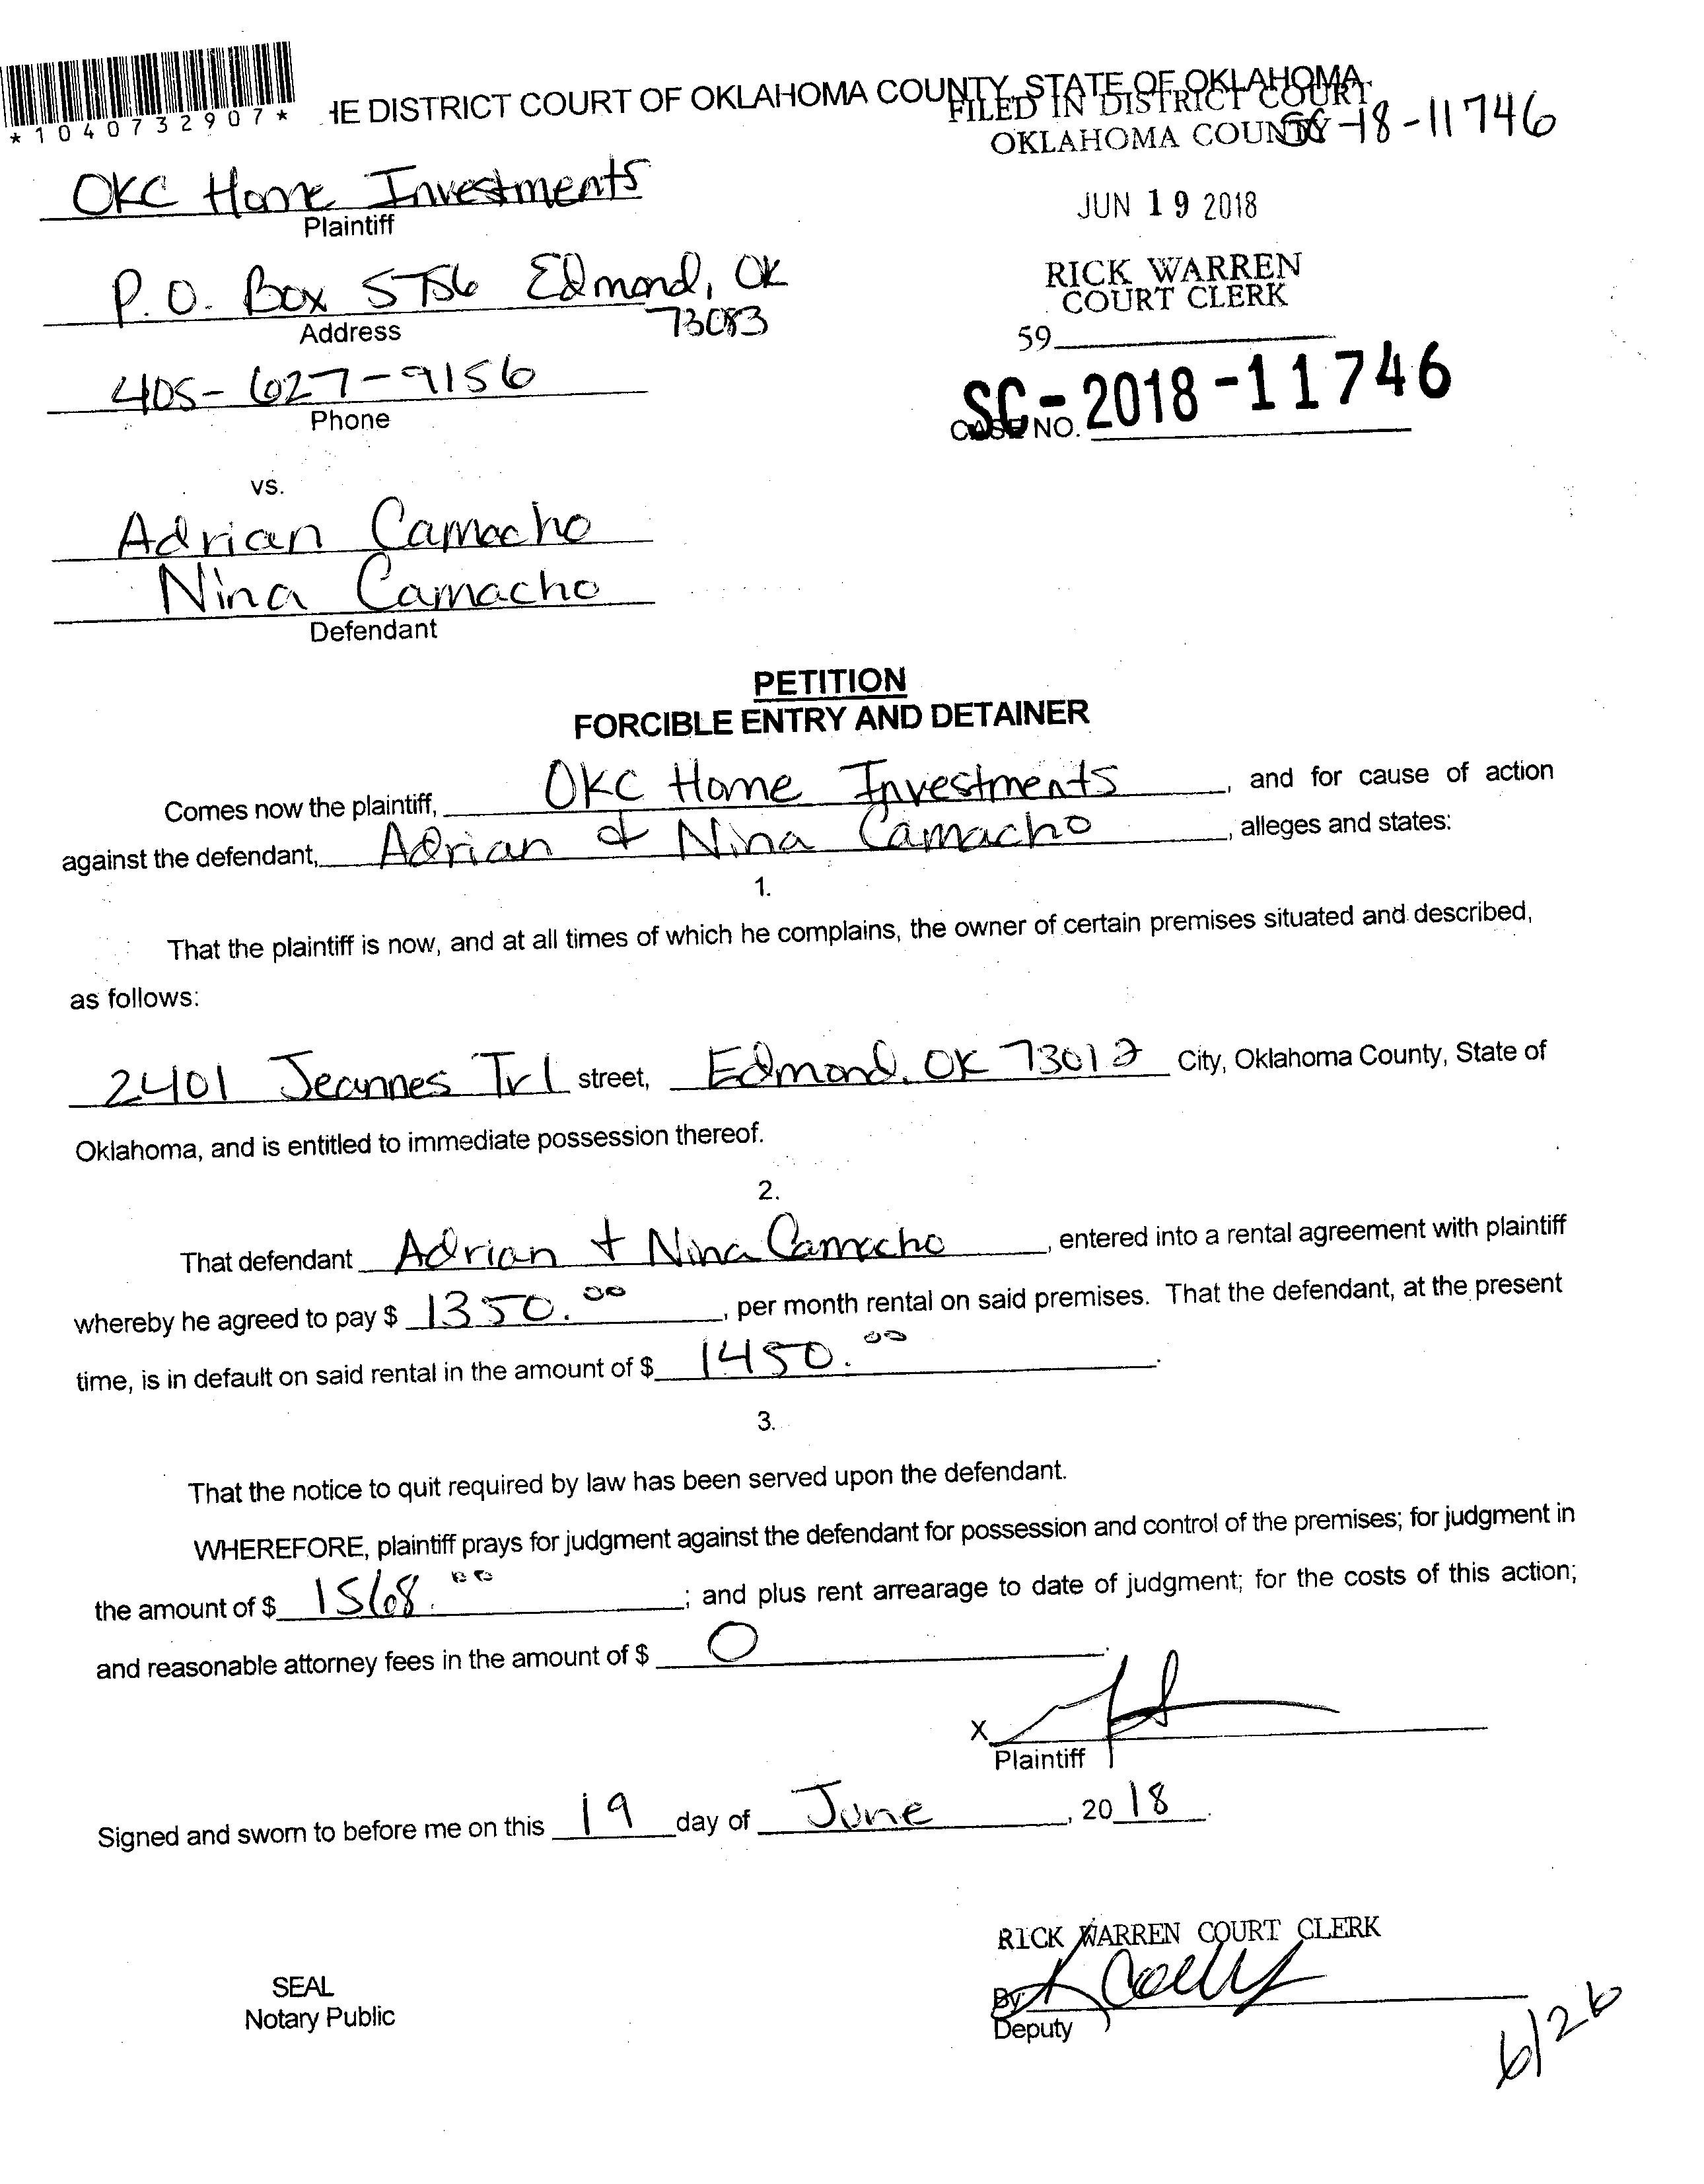 *1040732907*
HE DISTRICT COURT OF OKLAHOMA COUNTY, STATE OF OKLAHOMA
FILED IN DISTRICT COURT
OKLAHOMA COUNTY SC-18-11746
OKC Home Investments
Plaintiff
JUN 19 2018
P.O. Box 5756 Edmond, OK
73083
Address
RICK WARREN
COURT CLERK
59
405-627-9156
Phone
SC-2018-11746
CASE NO.
vs.
Adrian Camacho
Nina Camacho
Defendant
PETITION
FORCIBLE ENTRY AND DETAINER
Comes now the plaintiff, OKC Home Investments, and for cause of action
against the defendant, Adrian & Nina Camacho, alleges and states:
1.
That the plaintiff is now, and at all times of which he complains, the owner of certain premises situated and described,
as follows:
2401 Jeannes Trl street, Edmond, OK 73012 City, Oklahoma County, State of
Oklahoma, and is entitled to immediate possession thereof.
2.
That defendant Adrian + Nina Camacho, entered into a rental agreement with plaintiff
whereby he agreed to pay $ 1350.00, per month rental on said premises. That the defendant, at the present
time, is in default on said rental in the amount of $ 1450.00.
3.
That the notice to quit required by law has been served upon the defendant.
WHEREFORE, plaintiff prays for judgment against the defendant for possession and control of the premises; for judgment in
the amount of $ 1568.00; and plus rent arrearage to date of judgment; for the costs of this action;
and reasonable attorney fees in the amount of $ 0.
X
Plaintiff
Signed and sworn to before me on this 19 day of June, 2018.
RICK WARREN COURT CLERK
SEAL
Notary Public
By
Deputy
6/26